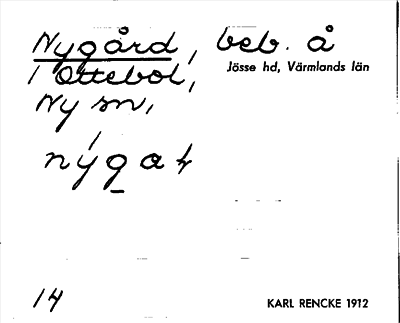 Nygård, beb. å
1 Ottebol,
Jösse hd, Värmlands län
Ny sn,
14
KARL RENCKE 1912